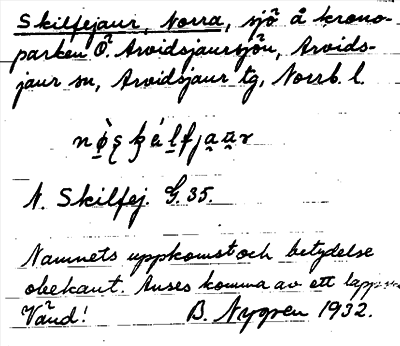 Skilfejaur, Norra, sjö å krono-
parken Ö. Arvidsjaursjön, Arvids-
jaur sn, Arvidsjaur tg, Norrb. l.
N. Skilfej. G. 35.
Namnets uppkomst och betydelse
obekant. Anses komma av ett
Vänd! B. Nygren 1932.